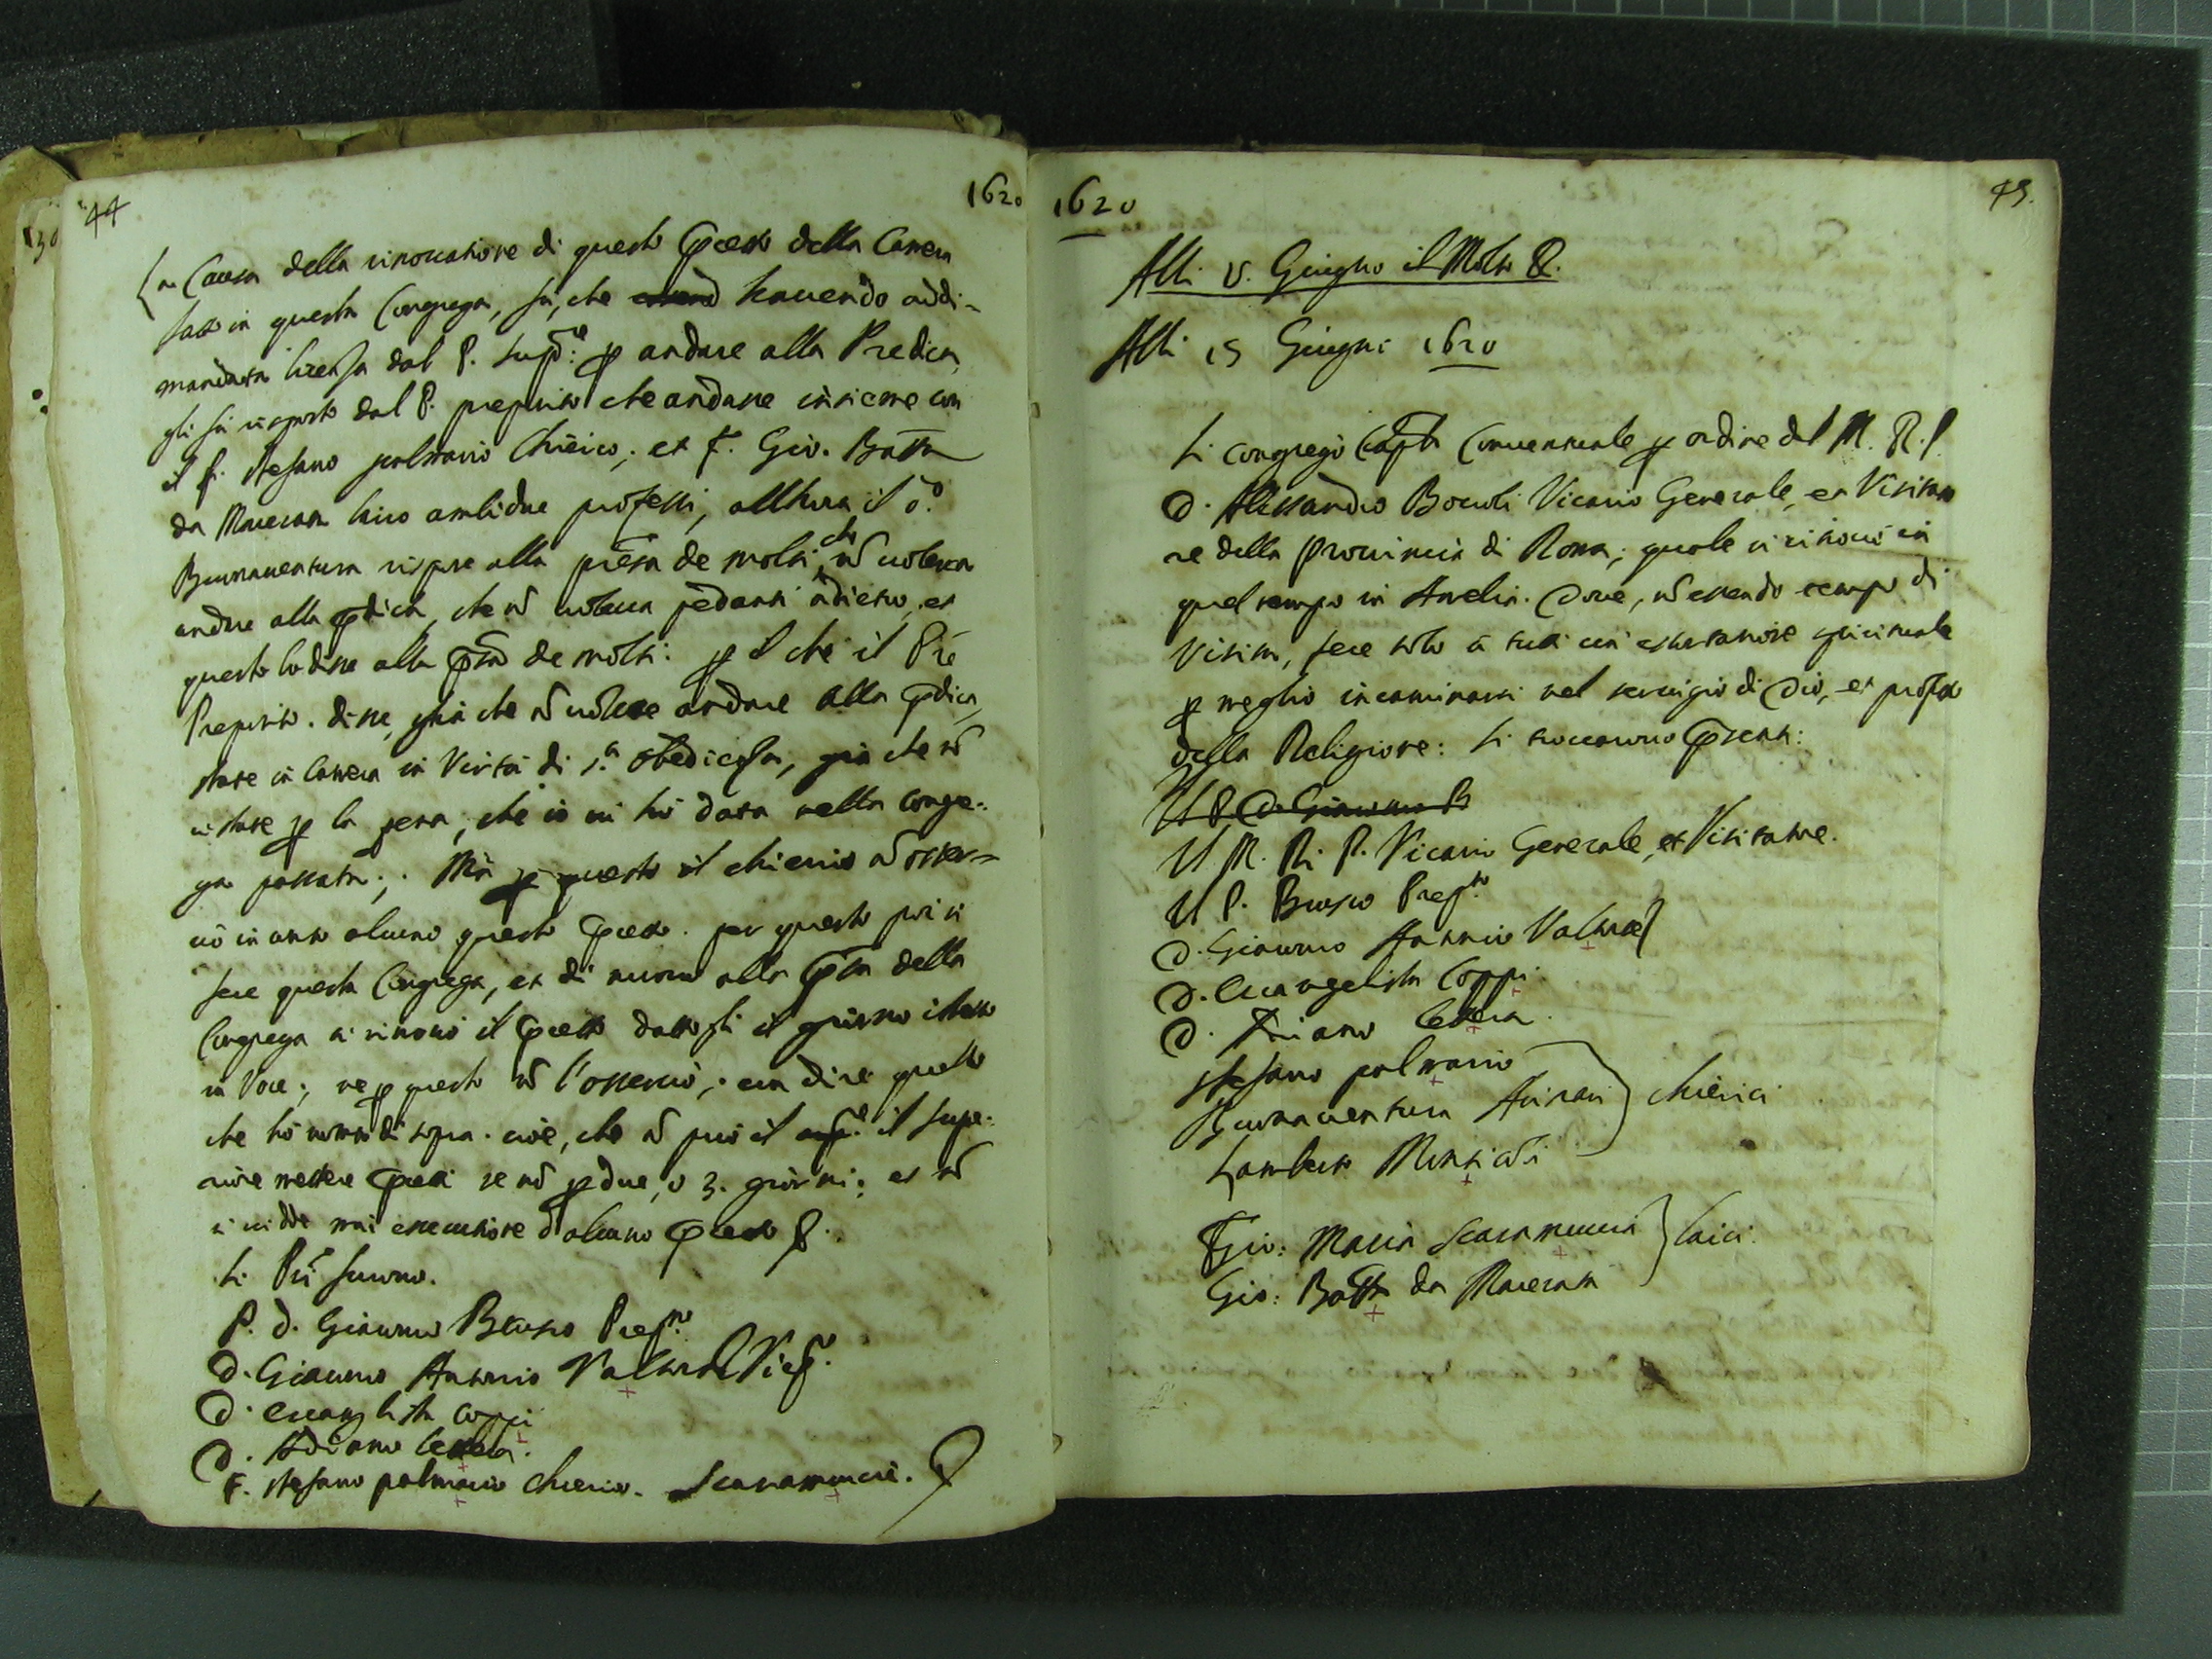 44
1620
La Causa della rinovatione di questo precetto della Camera
fatto in questa Congrega, fu, che havendo addi-
mandata licenza dal P. Sup.re p andare alla Predica,
gli fù risposto dal P. preposito che andasse insieme con
il f. stefano palmario Chierico, et f. Gio. Batta
da Macerata laico ambidue professi, allhora il d.o
Buonaventura rispose alla presẽza de molti che nõ voleva
andare alla pdica, che nõ voleva pedanti adietro, et
questo lo disse alla pñza de molti. p il che il Pre
Preposito. disse, già che nõ volete andare alla pdica,
state in Camera in Virtù di s.ta obedienza, già che nõ
ci state p la pena, che io vi hò data nella congre-
ga passata; Mà p questo il chierico nõ osser-
vò in conto alcuno questo precetto. per questo poi si
fece questa Congrega, et di nuovo alla pñza della
Congrega si rinovò il precetto dattogli il giorno istesso
in Voce; ne p questo nõ l'osservò; con dire quello
che hò notato di sopra. cioè, che nõ può il il supe-
riore mettere precetti se nõ p due, o 3. giorni; et nõ
si vidde mai essecutione d'alcuno precetto
Li Pri furno.
P. D. Giacomo Brusco Prep.to
D. Giacomo Antonio Valtorta Vicep.
D. evangelista coppi
D. Adriano
F. stefano palmario chierico. Scaramuccia.
1620
45.
Alli 15. Giugno il Molto R.
Alli 15 Giugno 1620
Si congregò Capto Conventuale p ordine del M. R. P.
D. Alessandro Boccoli Vicario Generale, et Visitato
re della Provincia di Roma; quale si ritrovò in
quel tempo in Amelia. Dove, nõ essendo tempo di
Visita, fece solo à tutti una essortatione spirituale
p meglio incaminarsi nel servigio di Dio, et profitto
della Religione: Si trovarono presenti:
Il P. D. Giacomo B
Il M. R. P. Vicario Generale, et Visitatore.
Il P. Brusco Prep.to
D. Giacomo Antonio Valtorta
D. Evangelista Coppi.
D. Adriano
stefano palmario
Buonaventura
chierici
Lamberto
Gio: Maria Scaramuccia
laici.
Gio: Batta da Macerata